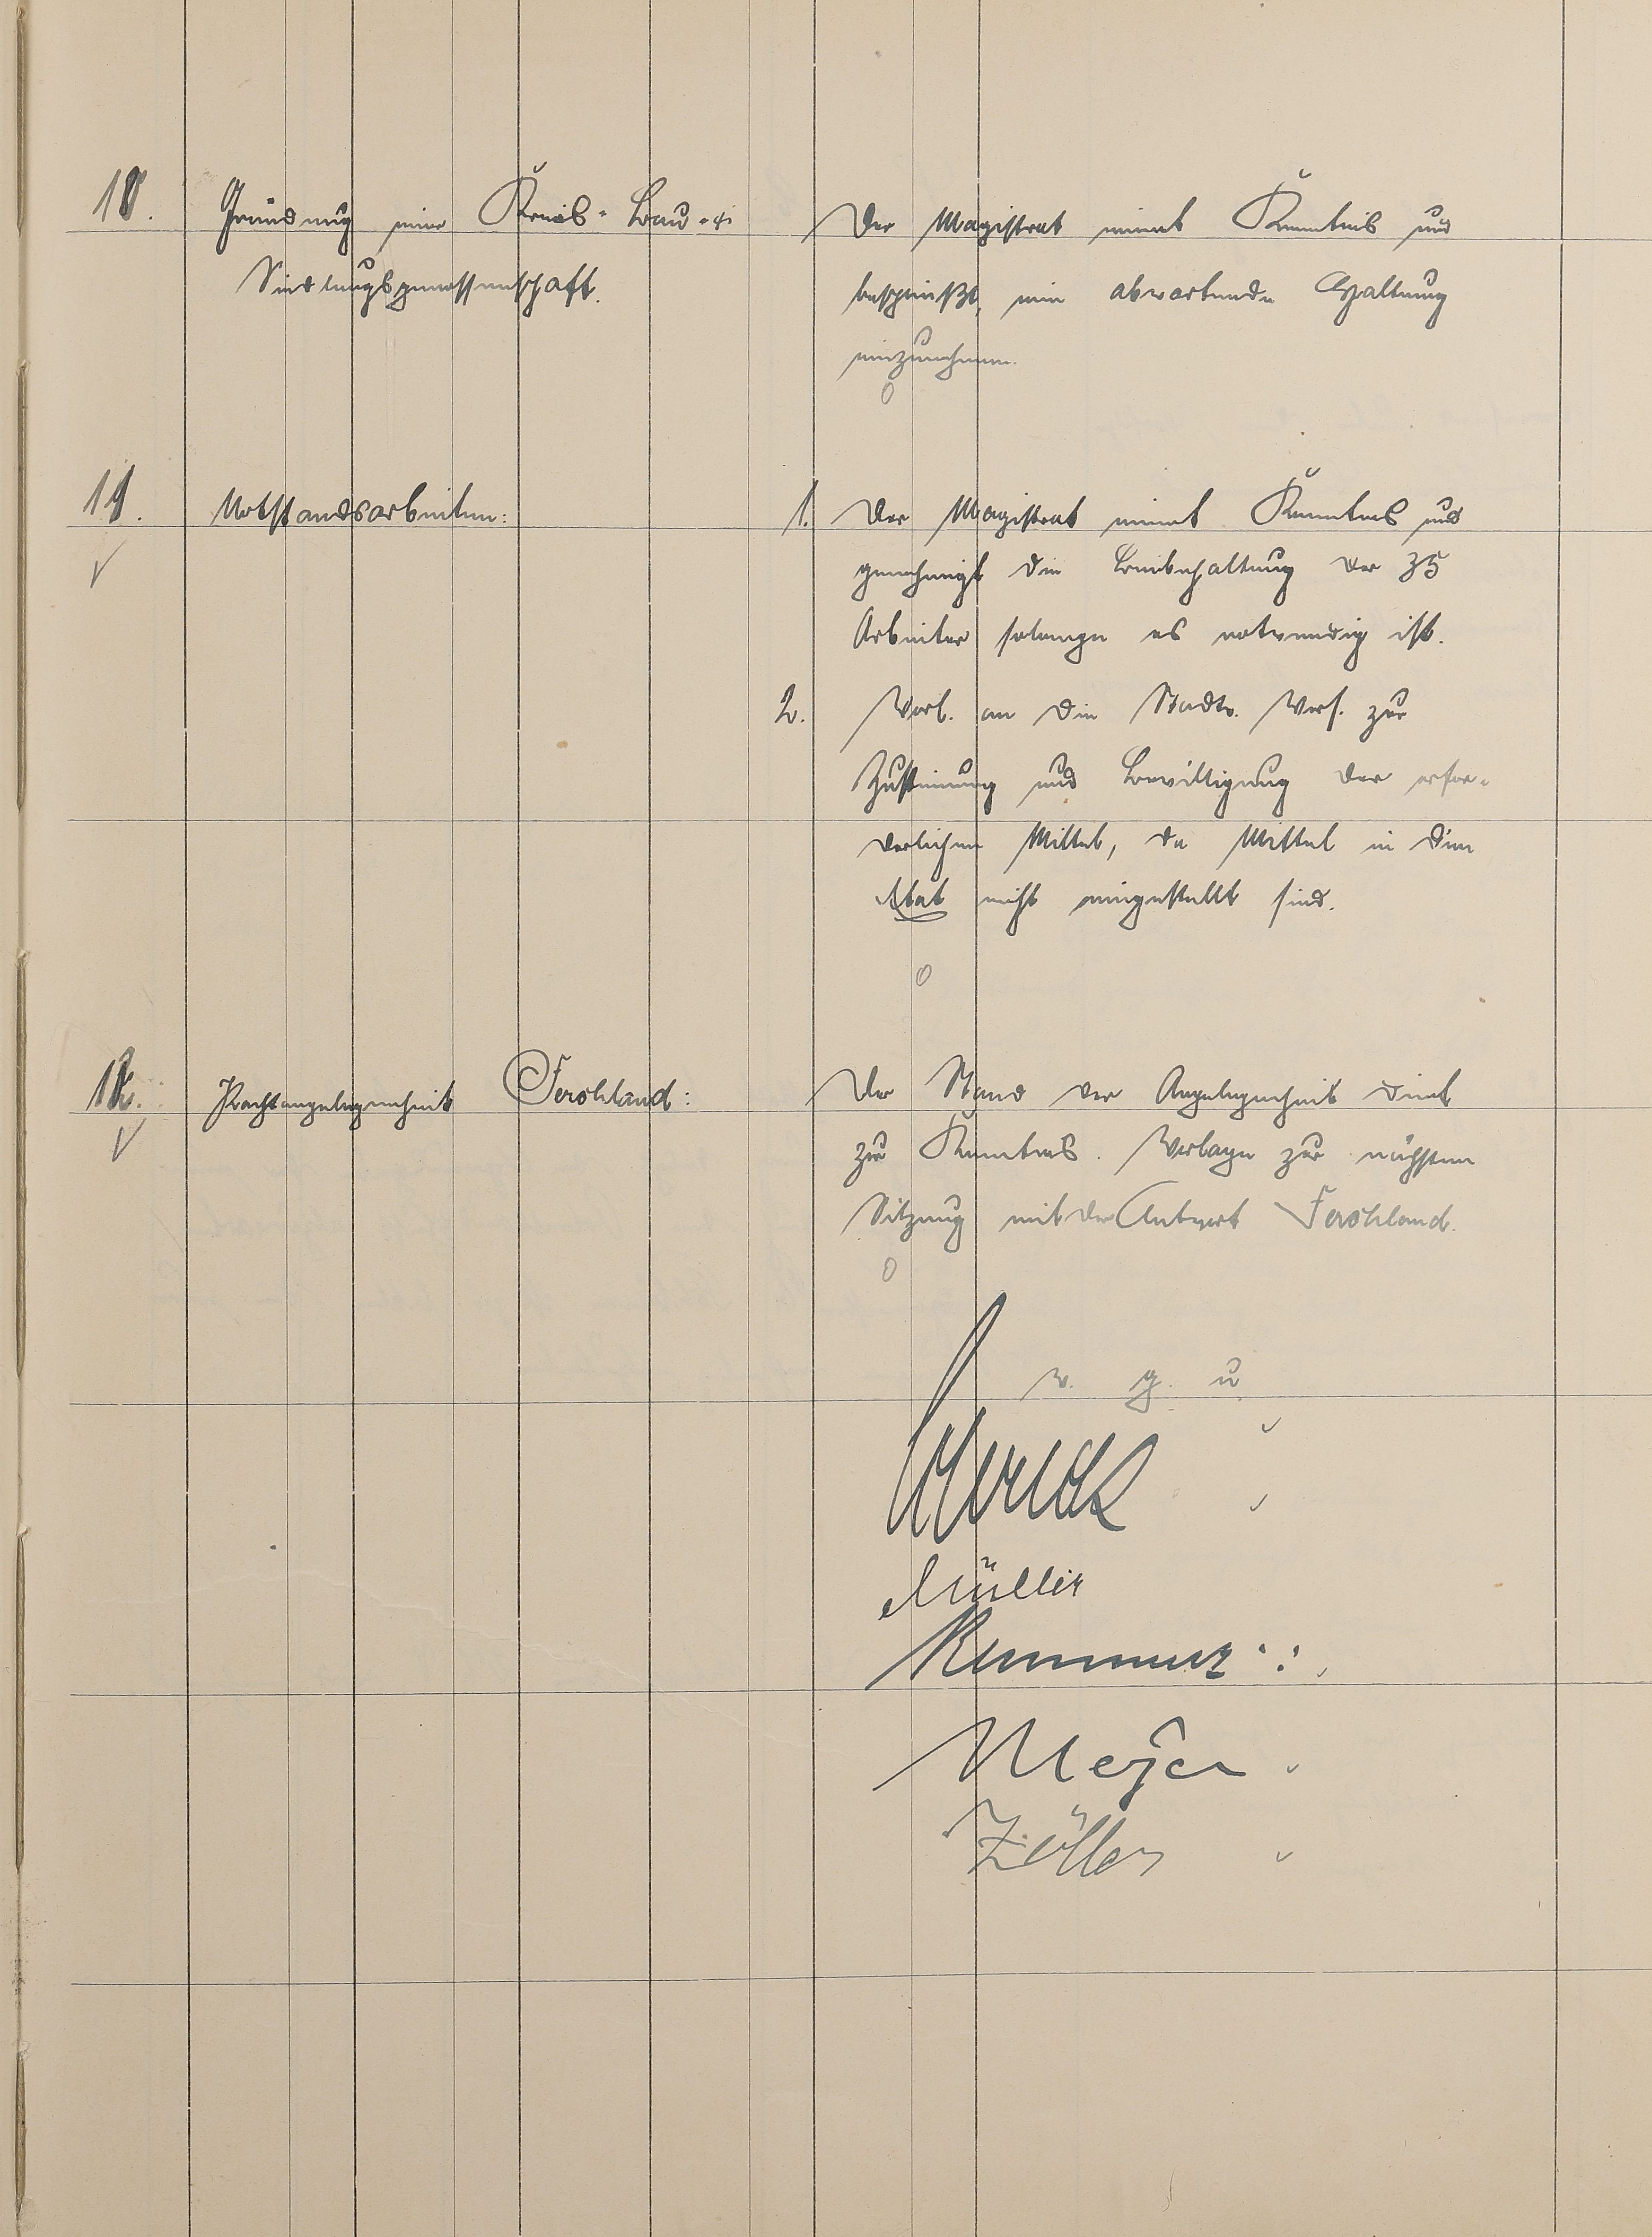 10.
Gründung einer Kreis-Bau- &
Siedlungsgenossenschaft.
Der Magistrat nimt Kenntnis und
beschließt, eine abwartende Haltung
einzunehmen.
11.
Notstandsarbeiten:
1. Der Magistrat nimt Kenntnis und
genehmigt die Beibehaltung der 35
Arbeiter solange es notwendig ist.
2. Vorl. an die Stadtv. Vers. zur
Zustimmung und Bewilligung der erfor-
derlichen Mittel, da Mittel in den
Etat nicht eingestellt sind.
12.
Pachtangelegenheit Ferchland:
Der Stand der Angelegenheit dient
zur Kenntnis. Vorlage zur nächsten
Sitzung mit der Antwort Ferchland.
v. g. u
Müller
Kummer
Meyer
Zöller